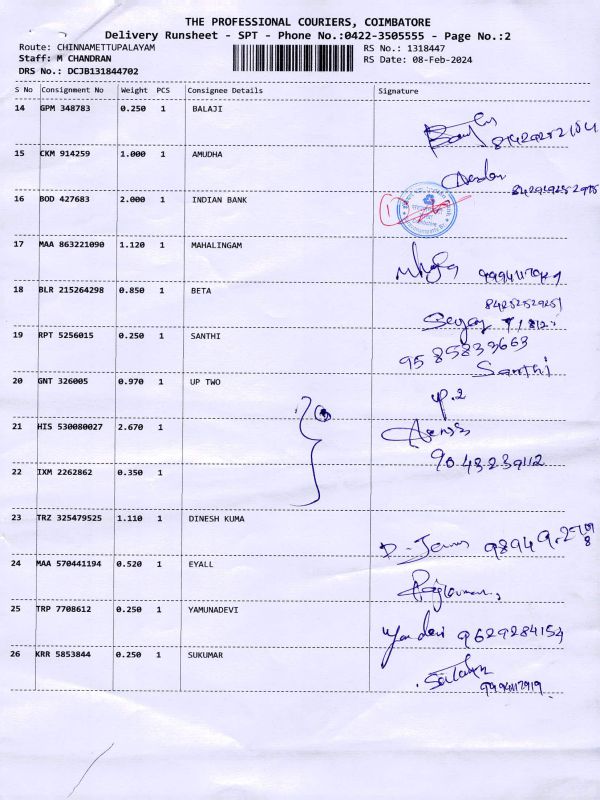 THE PROFESSIONAL COURIERS, COIMBATORE
Delivery Runsheet - SPT - Phone No.:0422-3505555 - Page No.:2
Route: CHINNAMETTUPALAYAM RS No.: 1318447
Staff: M CHANDRAN RS Date: 08-Feb-2024
DRS No.: DCJB131844702
S No Consignment No Weight PCS Consignee Details Signature
14 GPM 348783 0.250 1 BALAJI
15 CKM 914259 1.000 1 AMUDHA
16 BOD 427683 2.000 1 INDIAN BANK 1
17 MAA 863221090 1.120 1 MAHALINGAM
18 BLR 215264298 0.850 1 BETA
19 RPT 5256015 0.250 1 SANTHI
9585833663
Santhi
20 GNT 326005 0.970 1 UP TWO
21 HIS 530080027 2.670 1
9043239112
22 IXM 2262862 0.350 1
23 TRZ 325479525 1.110 1 DINESH KUMA
24 MAA 570441194 0.520 1 EYALL
25 TRP 7708612 0.250 1 YAMUNADEVI
9629284154
26 KRR 5853844 0.250 1 SUKUMAR